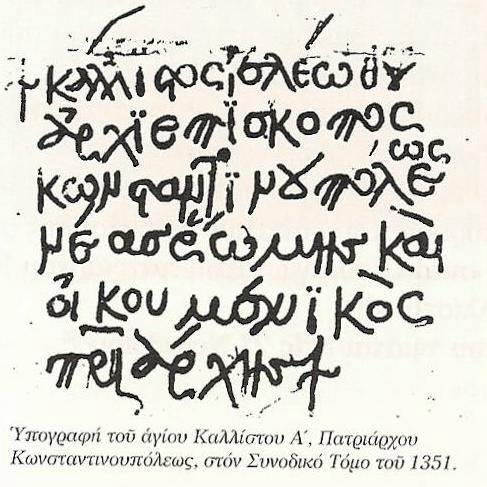 + κάλλιστος ἐλέω θυ
ἀρχϊεπίσκοπος
κωνσταντϊνουπόλεως
νέας ῥώμης καὶ
οἰκουμενϊκὸς
πριάρχης +
Ὑπογραφή τοῦ ἁγίου Καλλίστου Α΄, Πατριάρχου
Κωνσταντινουπόλεως, στόν Συνοδικό Τόμο τοῦ 1351.